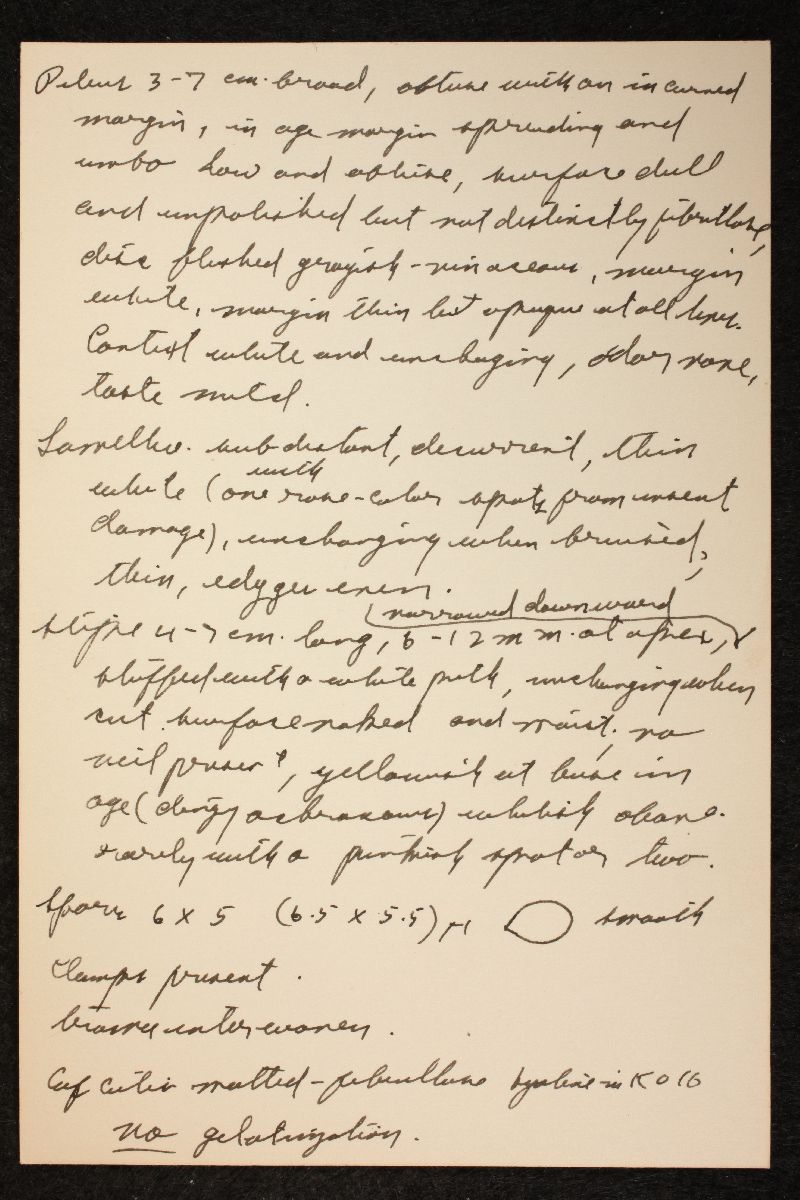 Pileus 3-7 cm. broad, obtuse with an incurved
margin, in age margin spreading and
umbo low and obtuse, surface dull
and unpolished but not distinctly fibrillose,
disc flushed grayish-vinaceous, margin
white, margin thin but opaque at all times.
Context white and unchanging, odor none,
taste mild.
Lamellae subdistant, decurrent, thin
white (one with rose-color spots from insect
damage), unchanging when bruised,
thin, edges even.
narrowed downward
stipe 4-7 cm. long, 6-12 mm. at apex,
stuffed with a white pith, unchanging when
cut, surface naked and moist, no
veil present, yellowish at base in
age (dingy ochraceous) whitish above.
rarely with a pinkish spot or two.
Spores 6 X 5 (6.5 X 5.5) μ smooth
Clamps present.
trama interwoven.
Cap cuticle matted-fibrillose hyaline in KOH
no gelatinization.